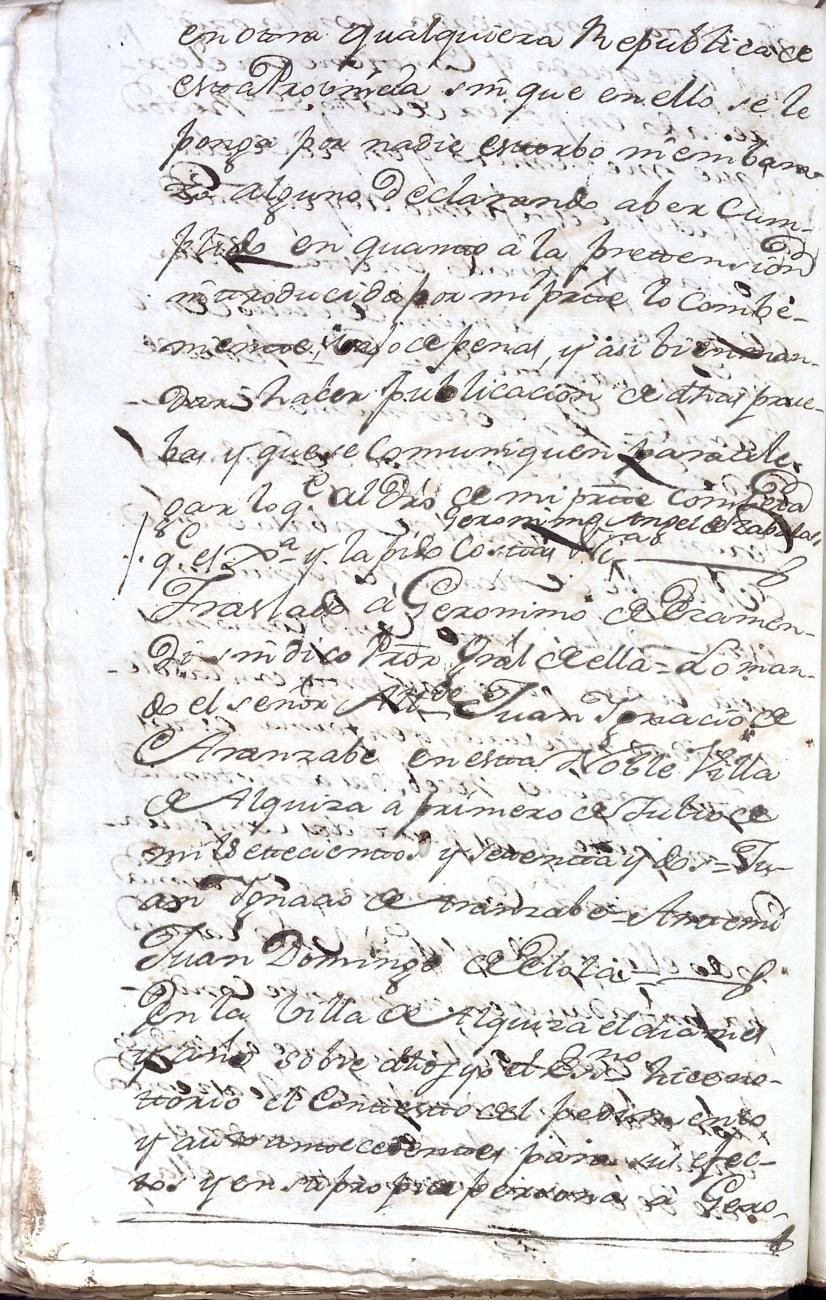 en otra qualquiera Republica de
esta Provincia sin que en ello se le
ponga por nadie estorbo ni embara-
zo alguno Declarando aber Cum-
plido en quanto à la pretension
introducida por mi pñte lo Combe-
niente, bajo de pena, y asi bien man-
dar hacer publicacion de dhas prue-
bas y que se Comuniquen para ale-
gar lo q.e al Dro de mi pñte Combenga
q.e es Jus.a y la pido Costas &c.a
Geronimo Angel de Zabala
Traslado à Geronimo de Eramen-
di sindico Pror Gral de ella = Lo man-
do el señor Alcde Juan Ignacio de
Aranzabe en esta Noble Villa
de Alquiza a primero de Julio de
mil setecientos y setenta y dos = Ju-
an Ignacio de Aranzabe = Ante mi
Juan Domingo de Elola
En la Villa de Alquiza el dia mes
y año sobre dhos yo el Ess.no hice no-
torio el Contexto del pedimento
y auto antecedentes para sus efec-
tos y en su propia persona à Gero-